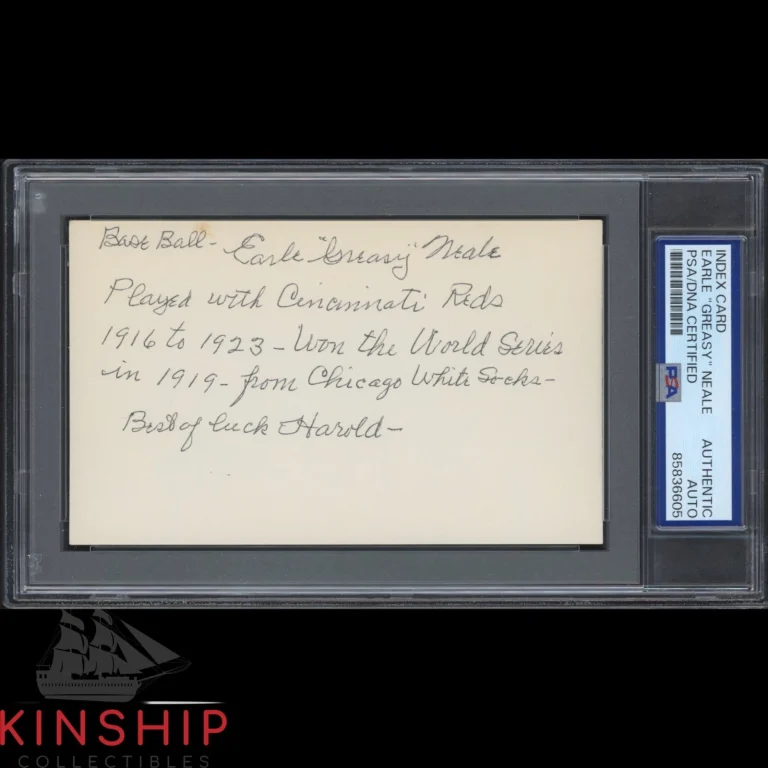 Base Ball- Earle "Greasy" Neale
Played with Cincinnati Reds
1916 to 1923 - Won the World Series
in 1919 - from Chicago White Socks -
Best of luck Harold -
INDEX CARD
EARLE "GREASY" NEALE
PSA/DNA CERTIFIED
AUTHENTIC
AUTO
85836605
PSA
KINSHIP
COLLECTIBLES